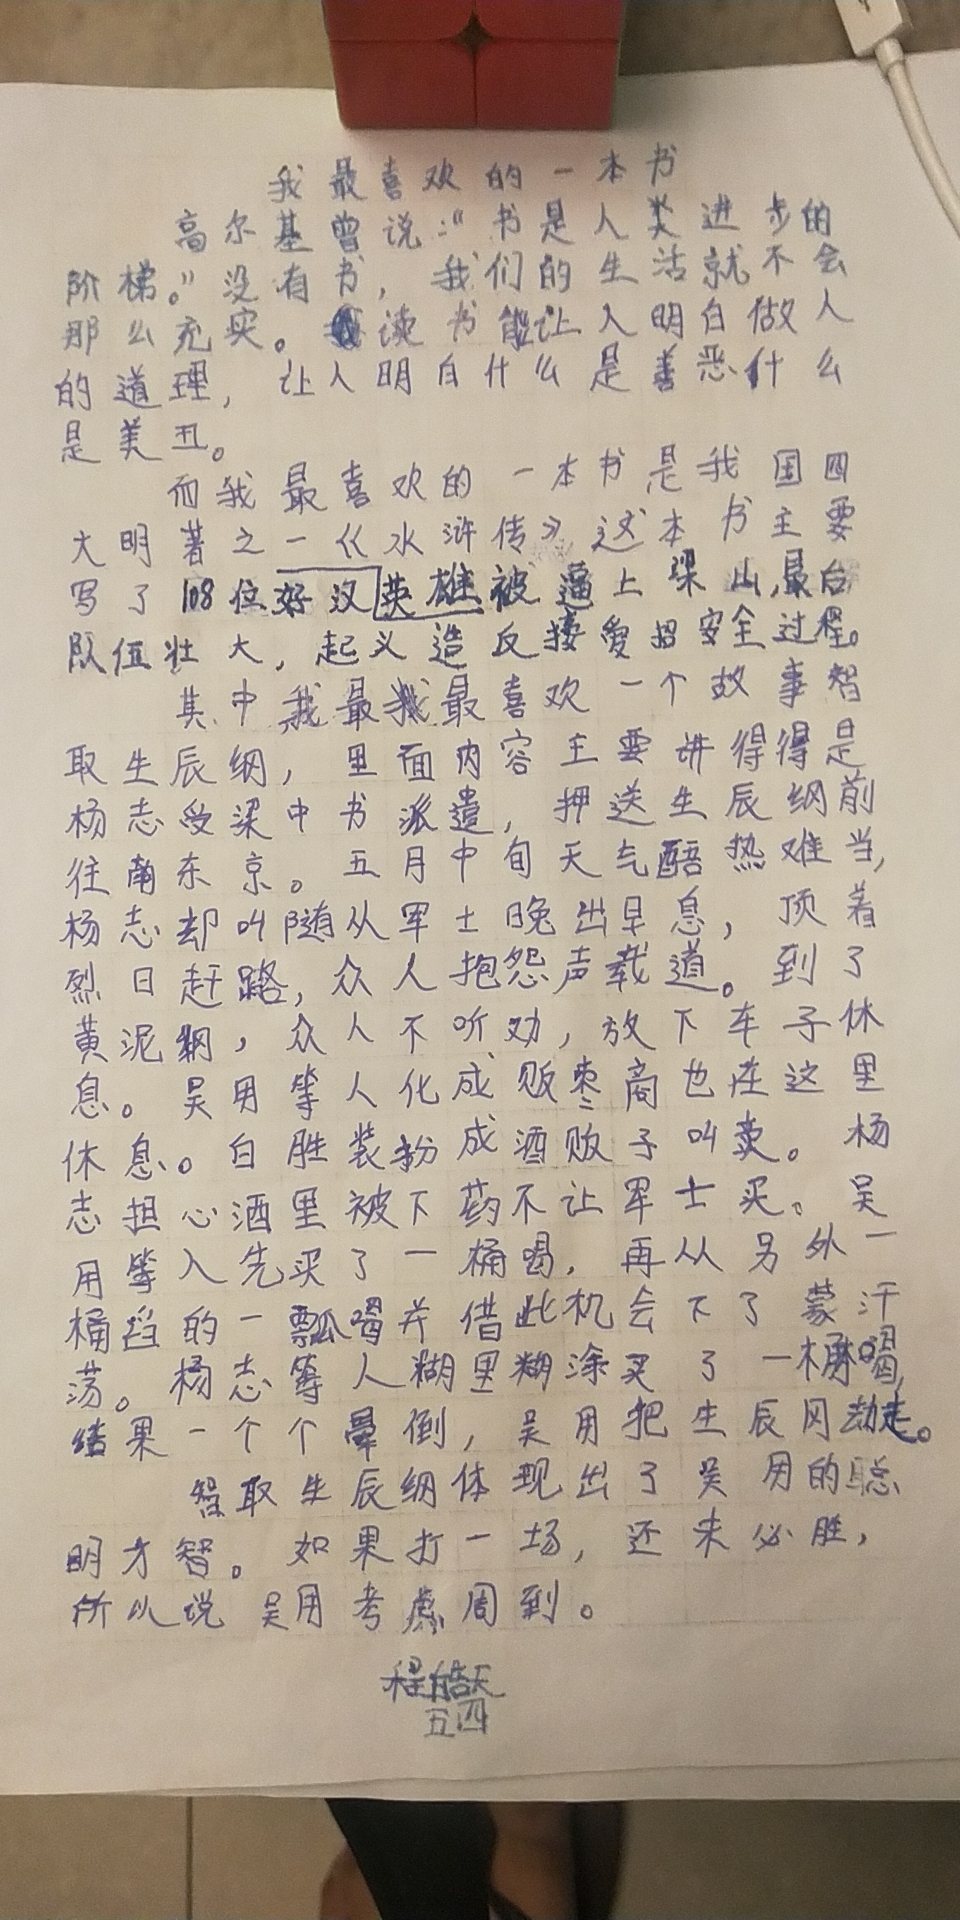 我最喜欢的一本书
高尔基曾说:“书是人类进步的
阶梯。”没有书,我们的生活就不会
那么充实。读书能让人明白做人
的道理,让人明白什么是善恶什么
是美丑。
而我最喜欢的一本书是我国四
大明著之一《水浒传》,这本书主要
写了108位好汉英雄被逼上梁山,最台
队伍壮大,起义造反接爱招安全过程。
其中我最我最喜欢一个故事智
取生辰纲,里面内容主要讲得得是
杨志受梁中书派遣,押送生辰纲前
往南东京。五月中旬天气酷热难当,
杨志却叫随从军士晚出早息,顶着
烈日赶路,众人抱怨声载道。到了
黄泥纲,众人不听劝,放下车子休
息。吴用等人化成贩枣商也在这里
休息。白胜装扮成酒贩子叫卖。杨
志担心酒里被下药不让军士买。吴
用等人先买了一桶喝,再从另外一
桶舀的一瓢喝并借此机会下了蒙汗
荡。杨志等人糊里糊涂买了一桶喝,
结果一个个晕倒,吴用把生辰冈劫走。
智取生辰纲体现出了吴用的聪
明才智。如果打一场,还未必胜,
所以说吴用考虑周到。
程皓天
五四